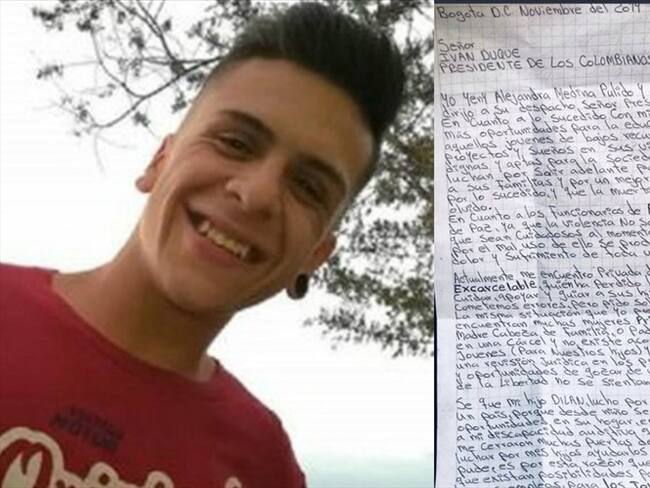 Bogotá D.C. Noviembre del 2019
Señor
IVAN DUQUE
PRESIDENTE DE LOS COLOMBIANOS
Yo Yeny Alejandra Medina Pulido y
dirijo a su despacho señor Pres
En cuanto a lo sucedido con mi
mas oportunidades para la
aquellos jovenes de bajos recu
proyectos y sueños
dignas y aptas para la socied
luchan por salir adelante
a sus familias y por un mejor
por lo sucedido, y que la muer
olvido.
En cuanto a los funcionarios de
de Paz, ya que la violencia No so
que sean cuidadosos al momento
por el mal uso de ello se prod
dolor y sufrimiento de toda u
Actualmente me encuentro Privada d
Excarcelable, quien ha perdido
cuidar, apoyar y guiar a sus
cometemos errores, pero
La misma situación que yo
encuentran muchas mujeres
Madre Cabeza de familia o Pad
en una cárcel y no existe
Jovenes (Para Nuestros hijos) y
una revisión juridica en los
y oportunidades de gozar de
de la libertad no se sientan
Se que mi hijo DILAN, lucho por
un pais, porque desde niño se
oportunidades, en su hogar, en
a mi descapacidad auditiva
me cerraron muchas puertas de
luchar por mis hijos ayudarlos
pude; es por esta razón que
que existan posibilidades